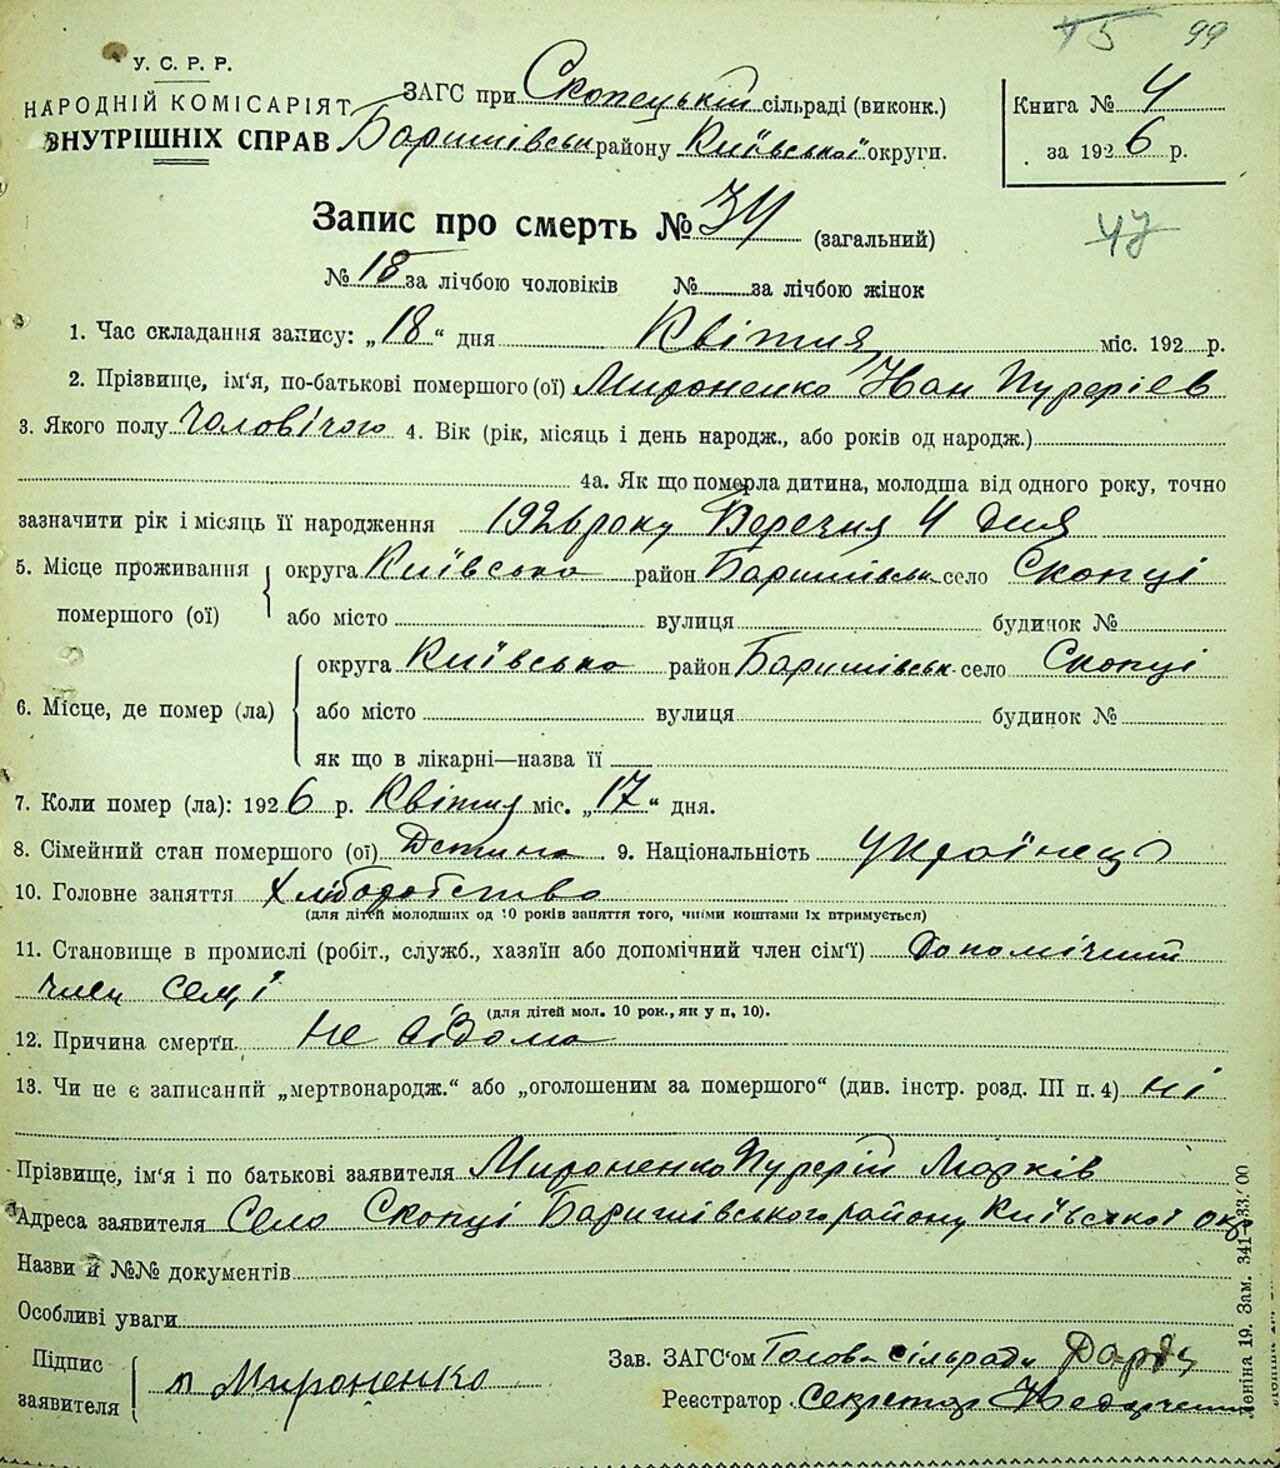 75 99
У. С. Р. Р.
НАРОДНІЙ КОМІСАРІЯТ
ВНУТРІШНІХ СПРАВ
ЗАГС при Скопецькій сільраді (виконк.)
Баришівськ району Київської округи.
Книга № 4
за 1926 р.
Запис про смерть № 34 (загальний)
47
№ 18 за лічбою чоловіків № за лічбою жінок
1. Час складання запису: „18“ дня Квітня міс. 192 р.
2. Прізвище, ім‘я, по-батькові помершого (ої) Мироненко Іван Пурфріев
3. Якого полу Чоловічого 4. Вік (рік, місяць і день народж., або років од народж.)
4а. Як що померла дитина, молодша від одного року, точно
зазначити рік і місяць її народження 1926 року Березня 4 дня
5. Місце проживання помершого (ої) округа Київська район Баришівськ село Скопці
або місто вулиця будинок №
6. Місце, де помер (ла) округа Київська район Баришівськ село Скопці
або місто вулиця будинок №
як що в лікарні—назва її
7. Коли помер (ла): 1926 р. Квітня міс. „17“ дня.
8. Сімейний стан помершого (ої) Детина 9. Національність Українець
10. Головне заняття Хліборобство
(для дітей молодших од 10 років заняття того, чиїми коштами їх втримується)
11. Становище в промислі (робіт., служб., хазяїн або допомічний член сім‘ї) Допомічний
член семі
(для дітей мол. 10 рок., як у п, 10).
12. Причина смерти Не відома
13. Чи не є записаний „мертвонародж.“ або „оголошеним за помершого“ (див. інстр. розд. III п. 4) ні
Прізвище, ім‘я і по батькові заявителя Мироненко Пурфрій Марків
Адреса заявителя Село Скопці Баришівського району Київської окр
Назви й №№ документів
Особливі уваги
Підпис заявителя Мироненко
Зав. ЗАГС‘ом Голова сільради
Реєстратор Секретар
Леніна 19. Зам. 341